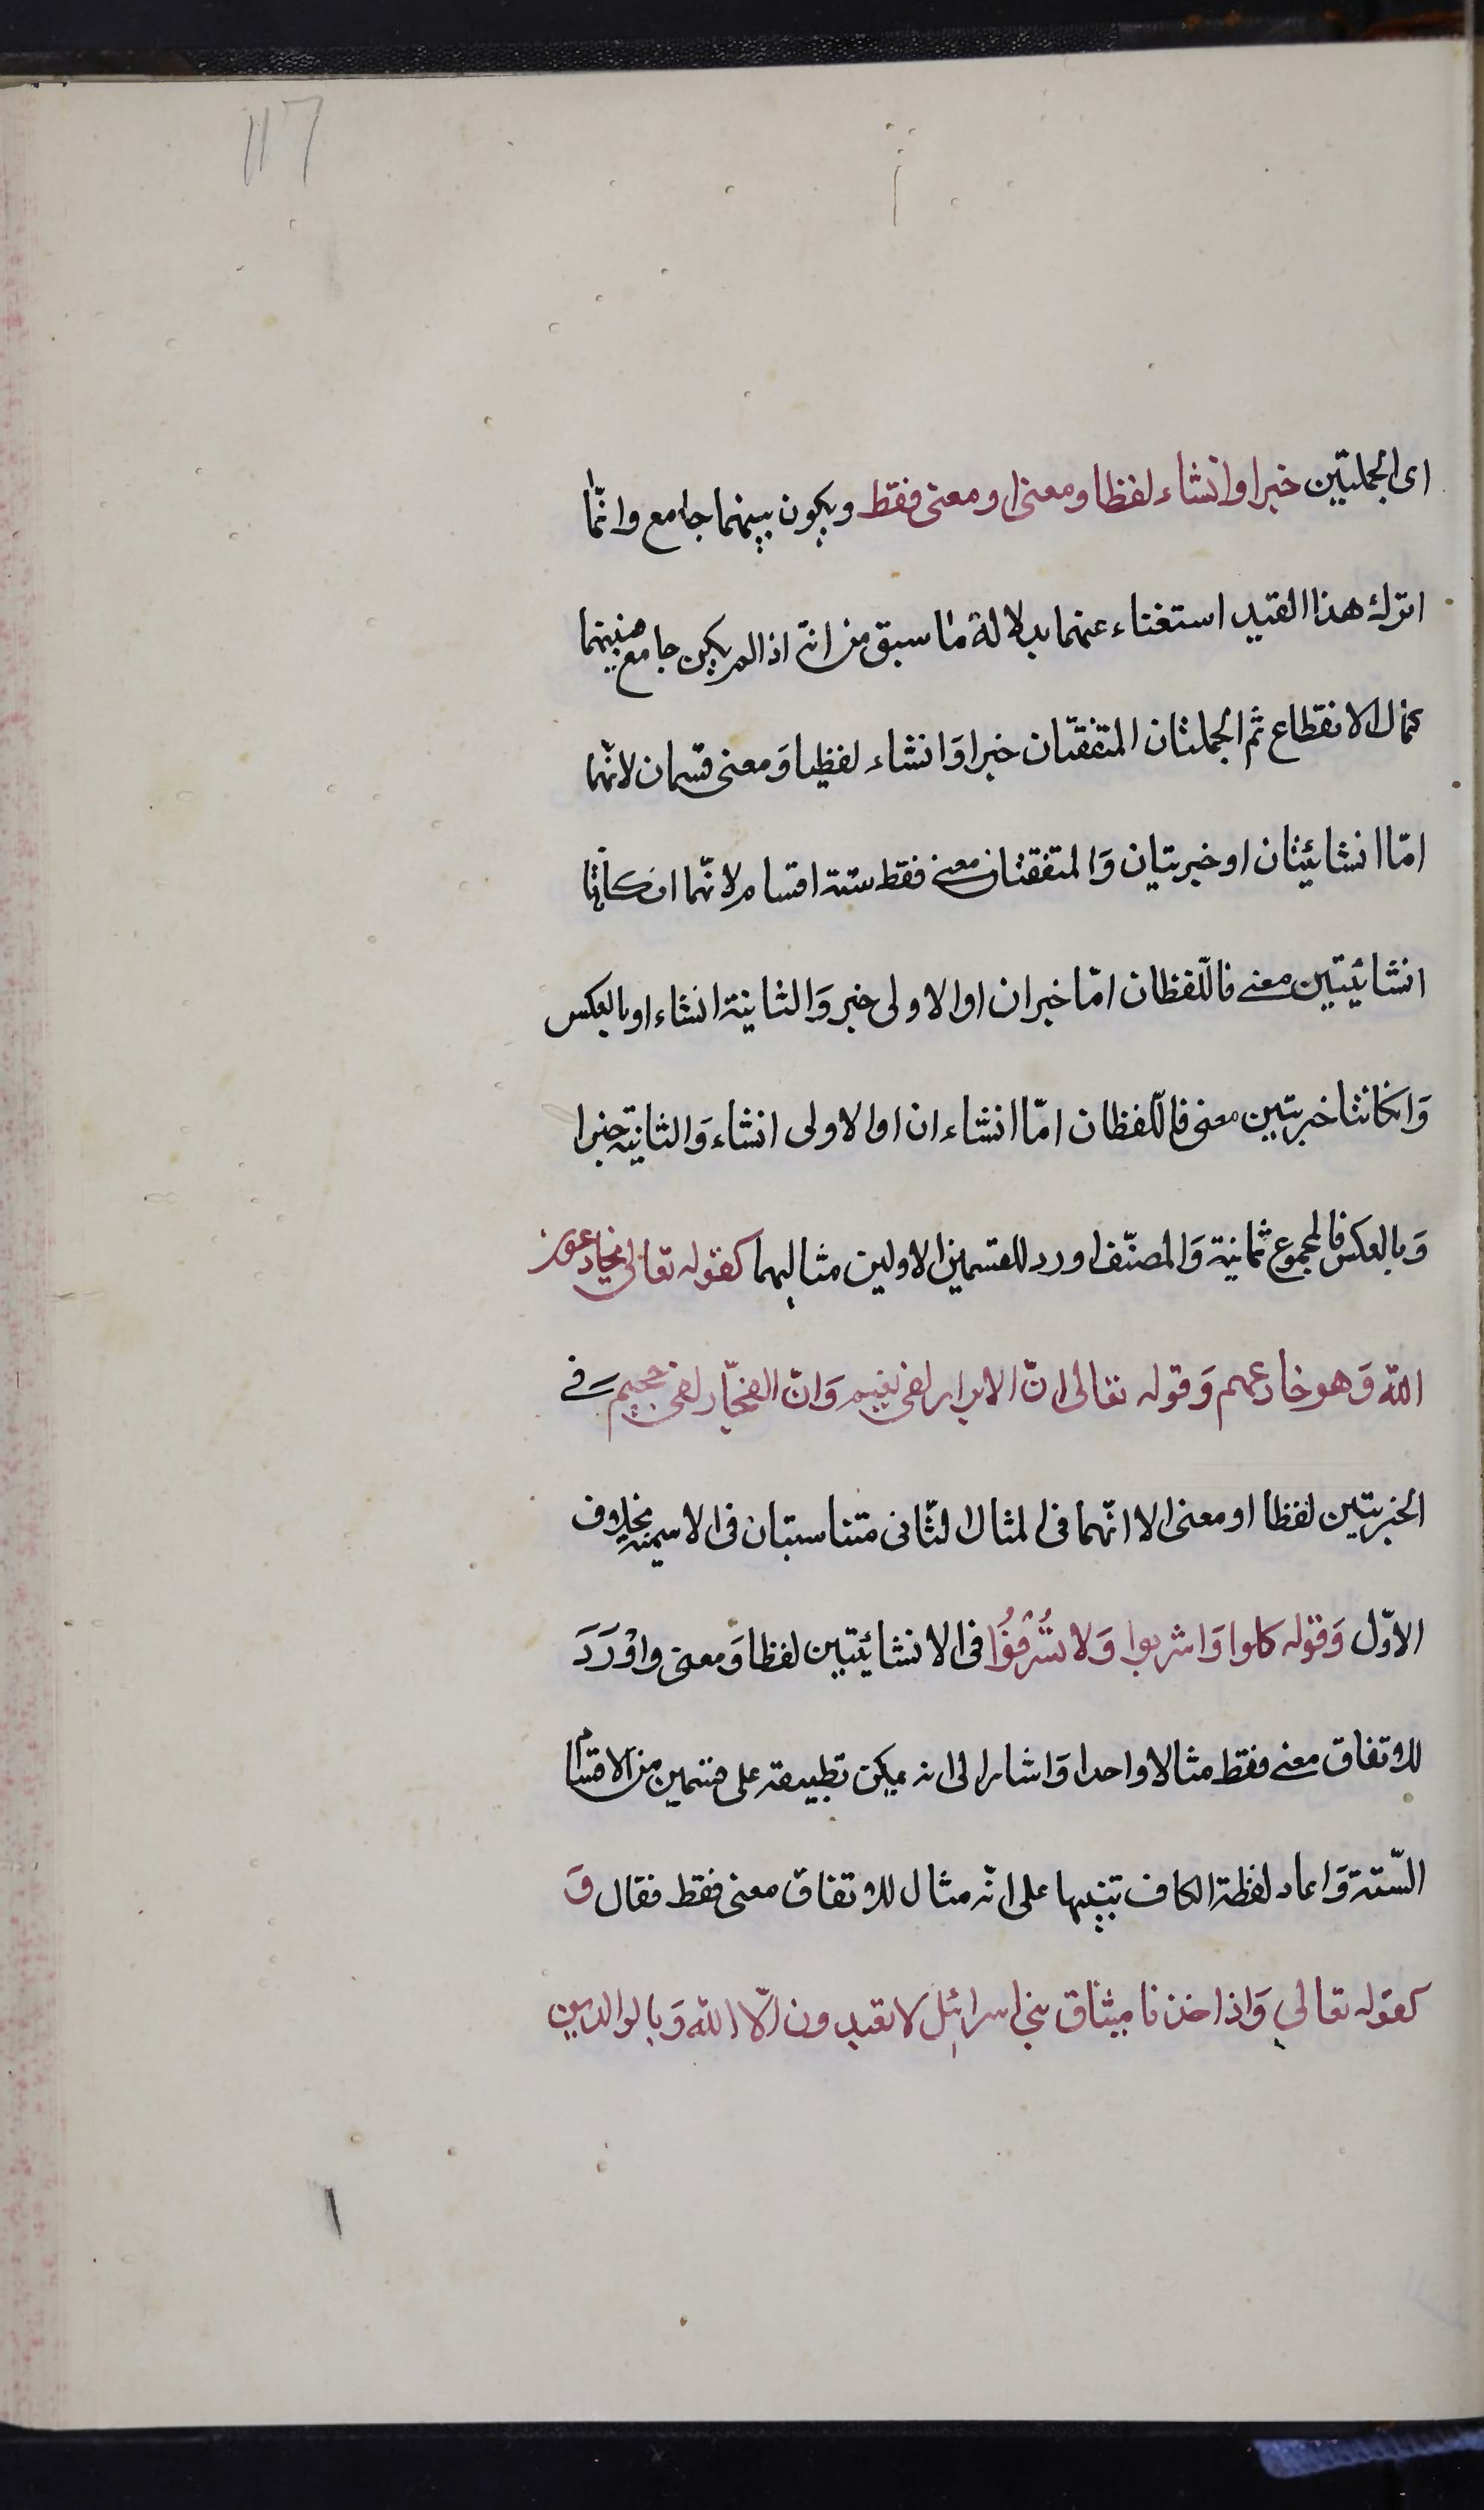 117
اى الجملتين خبرا وانشاء لفظا ومعنى او معنى فقط ويكون بينهما جامع وانّما
اترك هذا القيد استغناء عنهما بدلالة ما سبق من انّه اذا لم يكن جامع فبينهما
كمال الانقطاع ثم الجملتان المتفقتان خبرا وَانشاء لفظيا وَمعنى قسمان لانّهما
امّا انشائيتان او خبريتان وَالمتفقتان معنى فقط ستة اقسام لانّهما ان كانتا
انشائيّتين معنى فاللّفظان امّا خبران او الاولى خبر وَالثانية انشاء او بالعكس
وَان كانتا خبريتين معنى فاللّفظان امّا انشاءان او الاولى انشاء وَالثانية خبرا
وَبالعكس فالمجموع ثمانية وَالمصنّف اورد للقسمين الاولين مثاليهما كقوله تعالى يخادعون
اللّه وَهو خادعهم وَقوله تعالى انّ الابرار لفى نعيم وَانّ الفجّار لفى جحيم في
الخبريتين لفظا او معنى الا انّهما فى المثال الثّانى متناسبتان فى الاسمية بخلاف
الاوّل وَقوله كلوا وَاشربوا وَلا تُسْرِفُوُا فى الانشائيّتين لفظا وَمعنى واوْرَدَ
للاتفاق معنى فقط مثالا واحدا وَاشار الى انه يمكن تطبيقه على قسمين من الاقسام
السّتة وَاعاد لفظة الكاف تنبيها على انّه مثال للاتفاق معنى فقط فقال وَ
كقوله تعالى وَاذ اخذنا ميثاق بنى اسرائيل لا تعبدون الّا اللّه وَبالوالدين
١